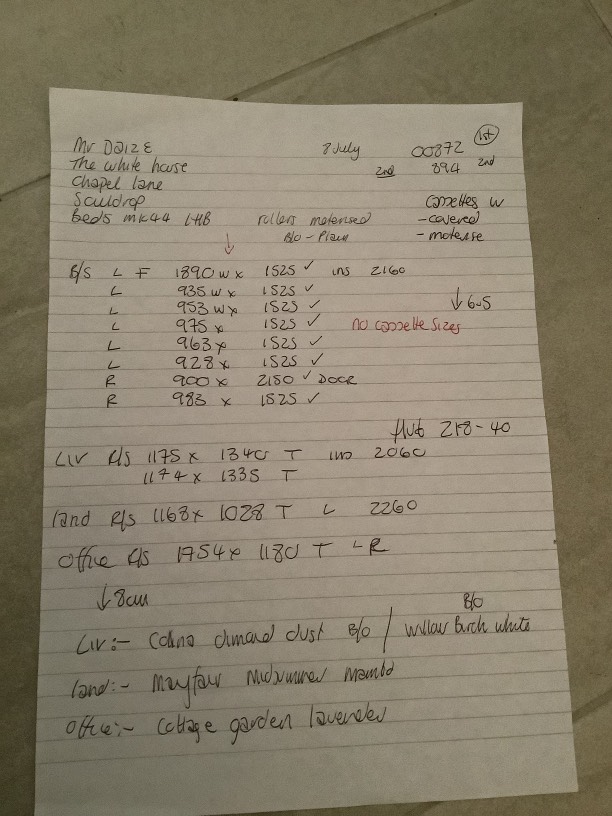 1st
Mr Daize 8 July 00872
The white house 2nd 894 2nd
Chapel lane
Souldrop Cassettes W
Beds MK44 1HB rollers motorised - covered
B/o - Plain - motorise
↓
L F 1890 w x 1525 ✓ ins 2160
L 935 w x 1525 ✓
L 953 w x 1525 ✓ ↓
L 975 x 1525 ✓ no cassette sizes
L 963 x 1525 ✓
L 928 x 1525 ✓
R 900 x ✓ DOOR
R 983 x 1525 ✓
218-40
Liv R/s 1175 x 1340 T ins 2060
1174 x 1335 T
land R/s 1168 x 1028 T L 2260
Office R/s 1754 x 1180 T L R
↓ 8cm
B/o
Liv:- dimand dust B/o / Willow Birch white
land:- Mayfair Midsummer
Office:- Cottage garden lavender